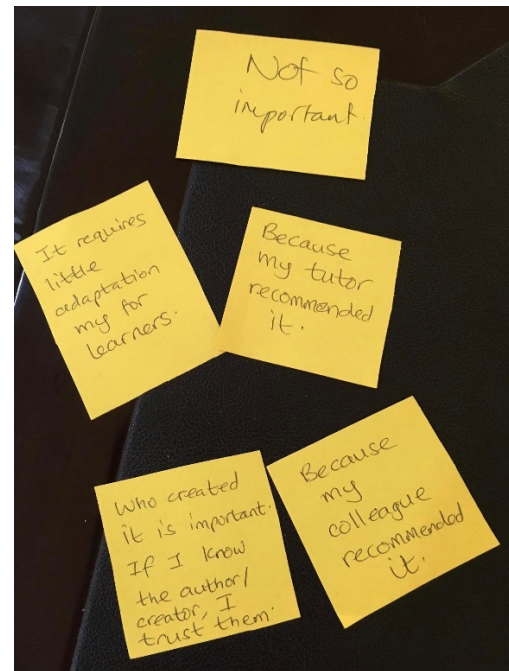 Not so
important.
It requires
little
adaptation
my for
learners.
Because
my tutor
recommended
it.
Who created
it is important.
If I know
the author/
creator, I
trust them.
Because
my
colleague
recommended
it.